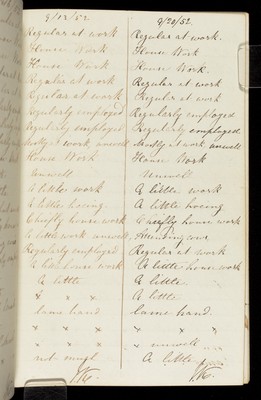 9/13/52
Regular at work
House Work
House Work
Regular at work
Regular at work
Regularly employed
Regularly employed
Mostly at work, unwell
House Work
Unwell
A little work
A little hoeing
Chiefly house work
A little work unwell
Regularly employed
A little house work
A little
" " "
lame hand
" " "
" " "
not much
9/20/52.
Regular at work.
House Work
House Work.
Regular at work
Regular at work
Regularly employed
Regularly employed.
Mostly at work unwell
House Work
Unwell
A little work
A little hoeing
Chiefly house work
Attending cows
Regular at work
A little house work
A little
A little
lame hand.
" " "
" unwell
A little